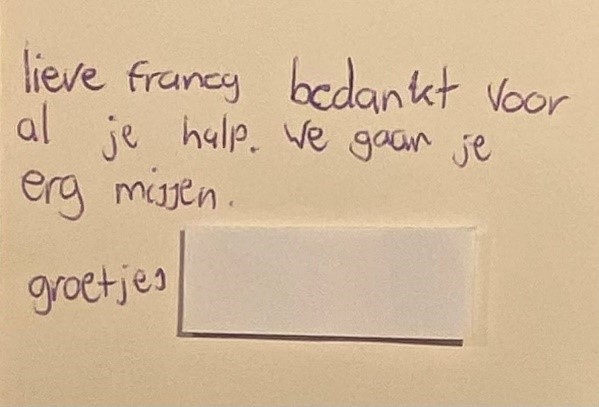 lieve francy bedankt voor
al je hulp. We gaan je
erg missen.
groetjes